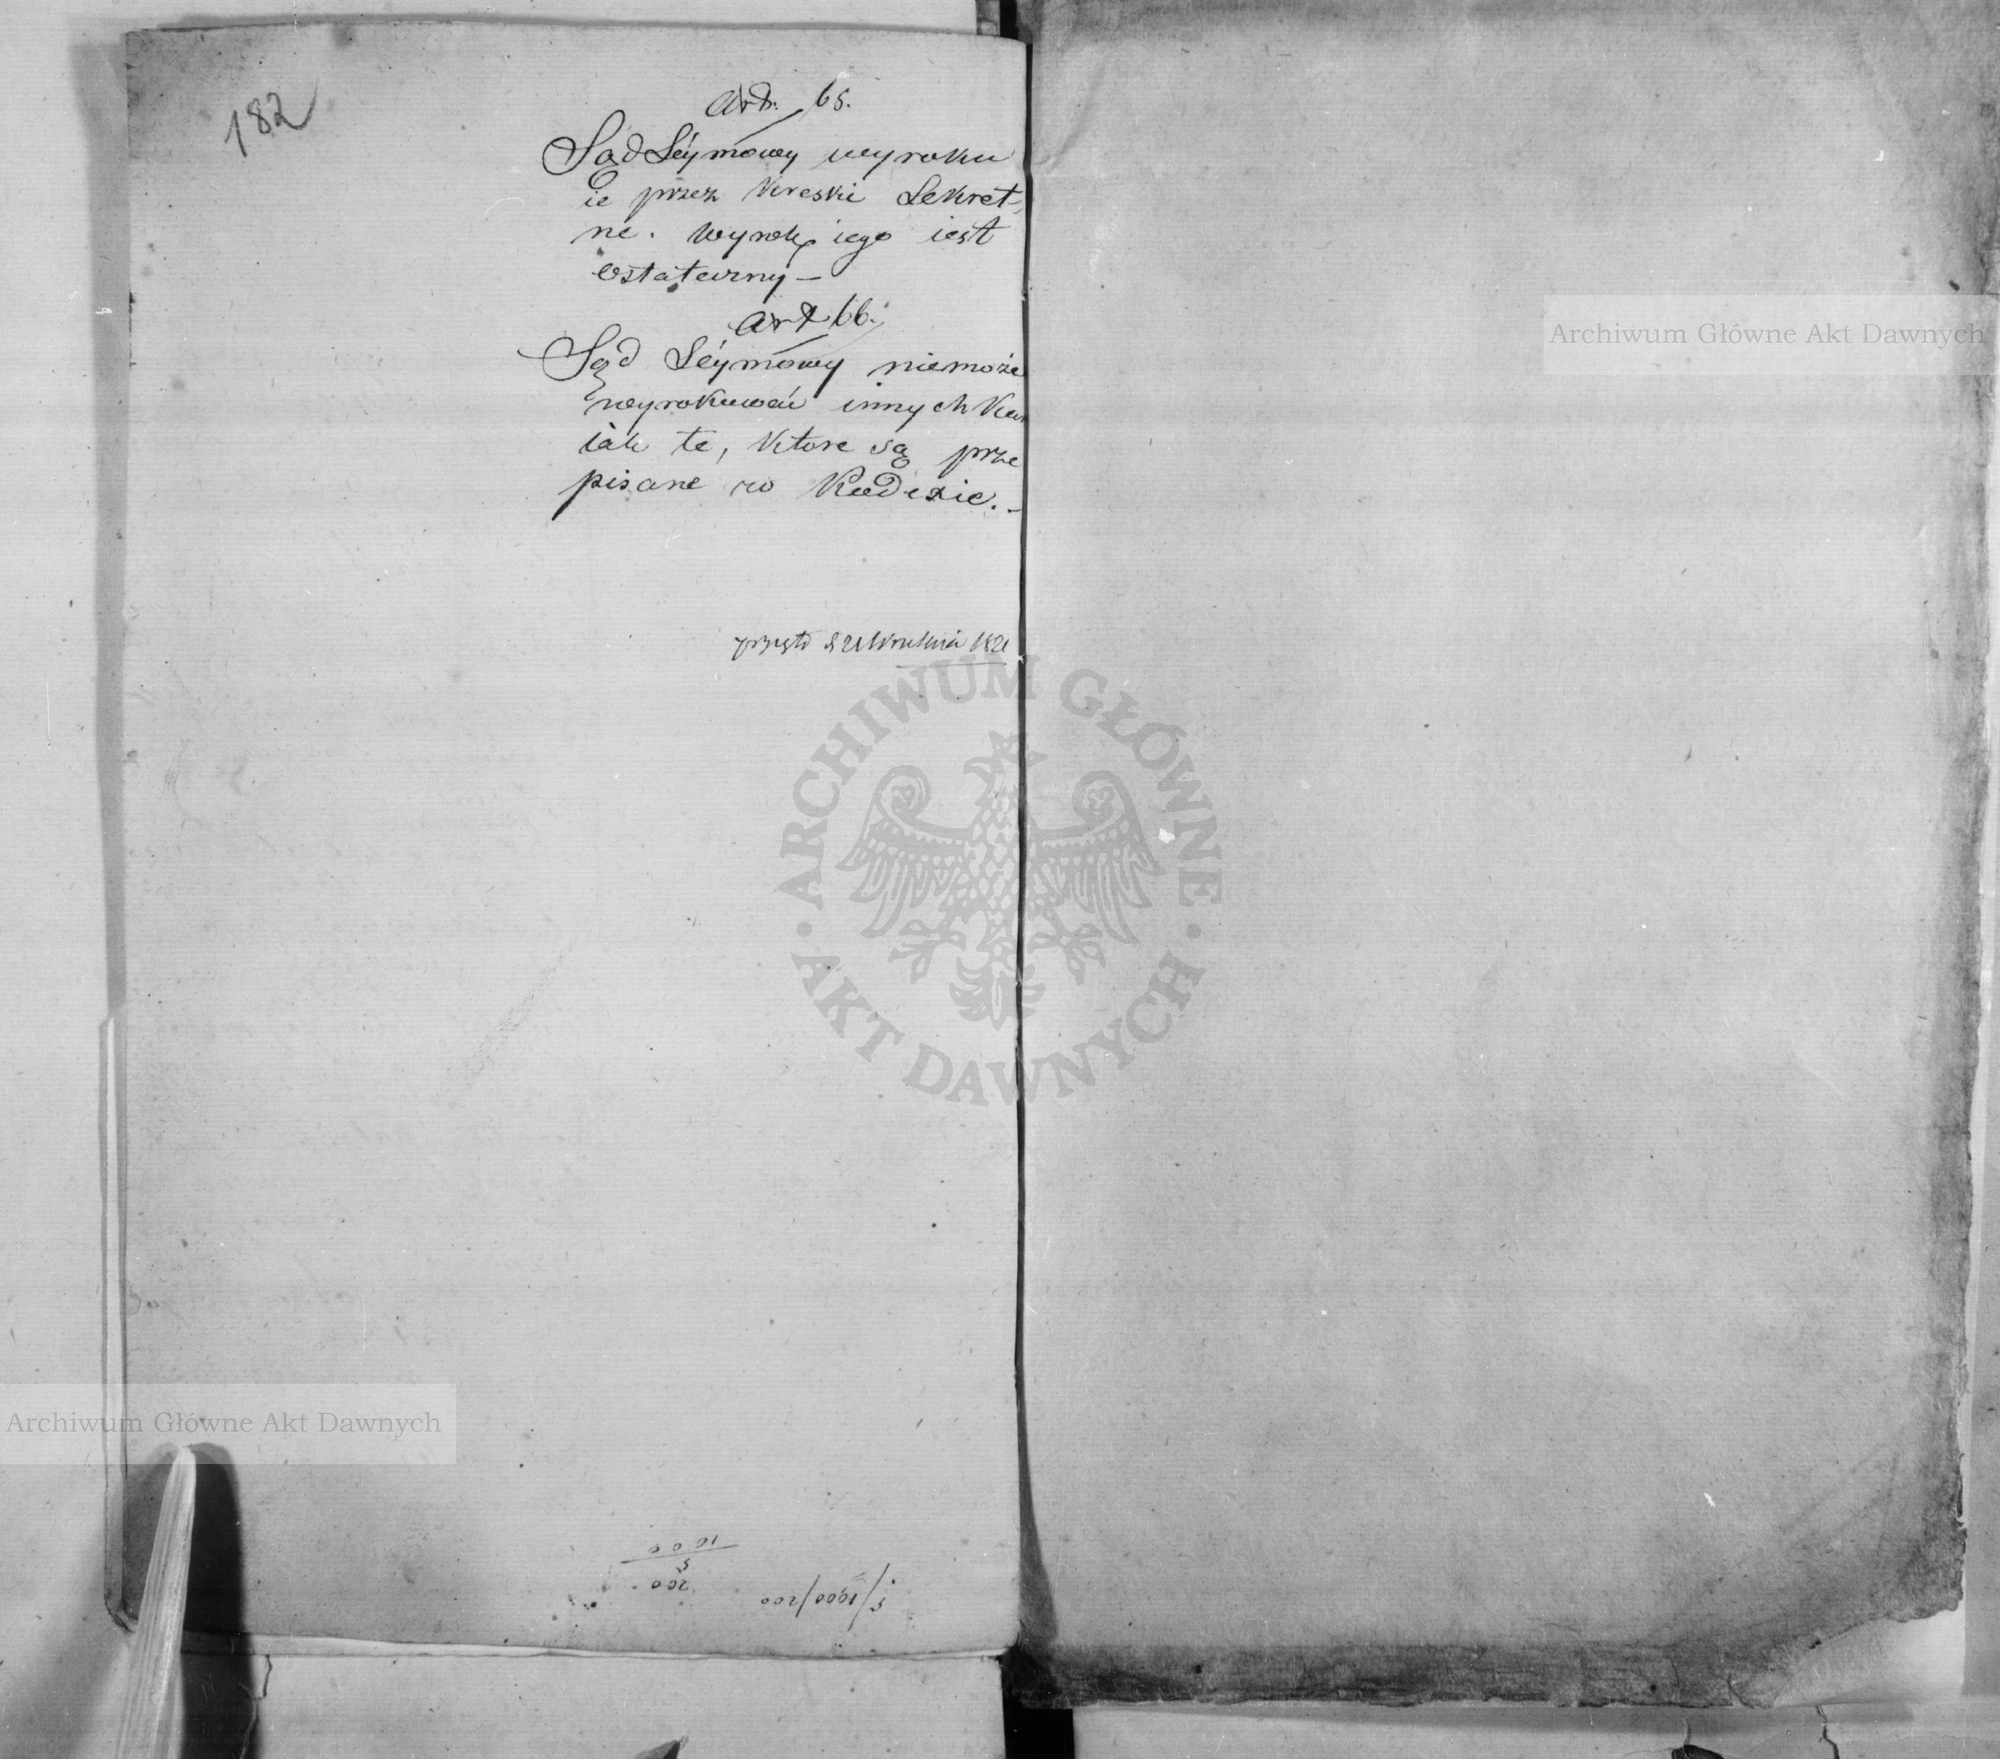 182
Art. 65.
Sąd Séymowy wyroku
ie przez kreski Sekret-
ne. Wyrok iego iest
ostateczny —
Art 66.
Sąd Séymowy niemoże
wyrokować innych kar
iak te, które są prze
pisane w Kodexie. -
1821
1000
5
200
5/1000/200
Archiwum Główne Akt Dawnych
ARCHIWUM GŁÓWNE · AKT DAWNYCH ·
Archiwum Główne Akt Dawnych